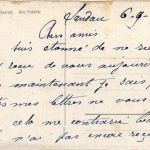 Sendau 6-9-
Chers amis
suis étonné de ne
reçu de vous aujour
maintenant je sais,
mes lettres ne vous
cela me contrarie
n'ai pas encore reçu